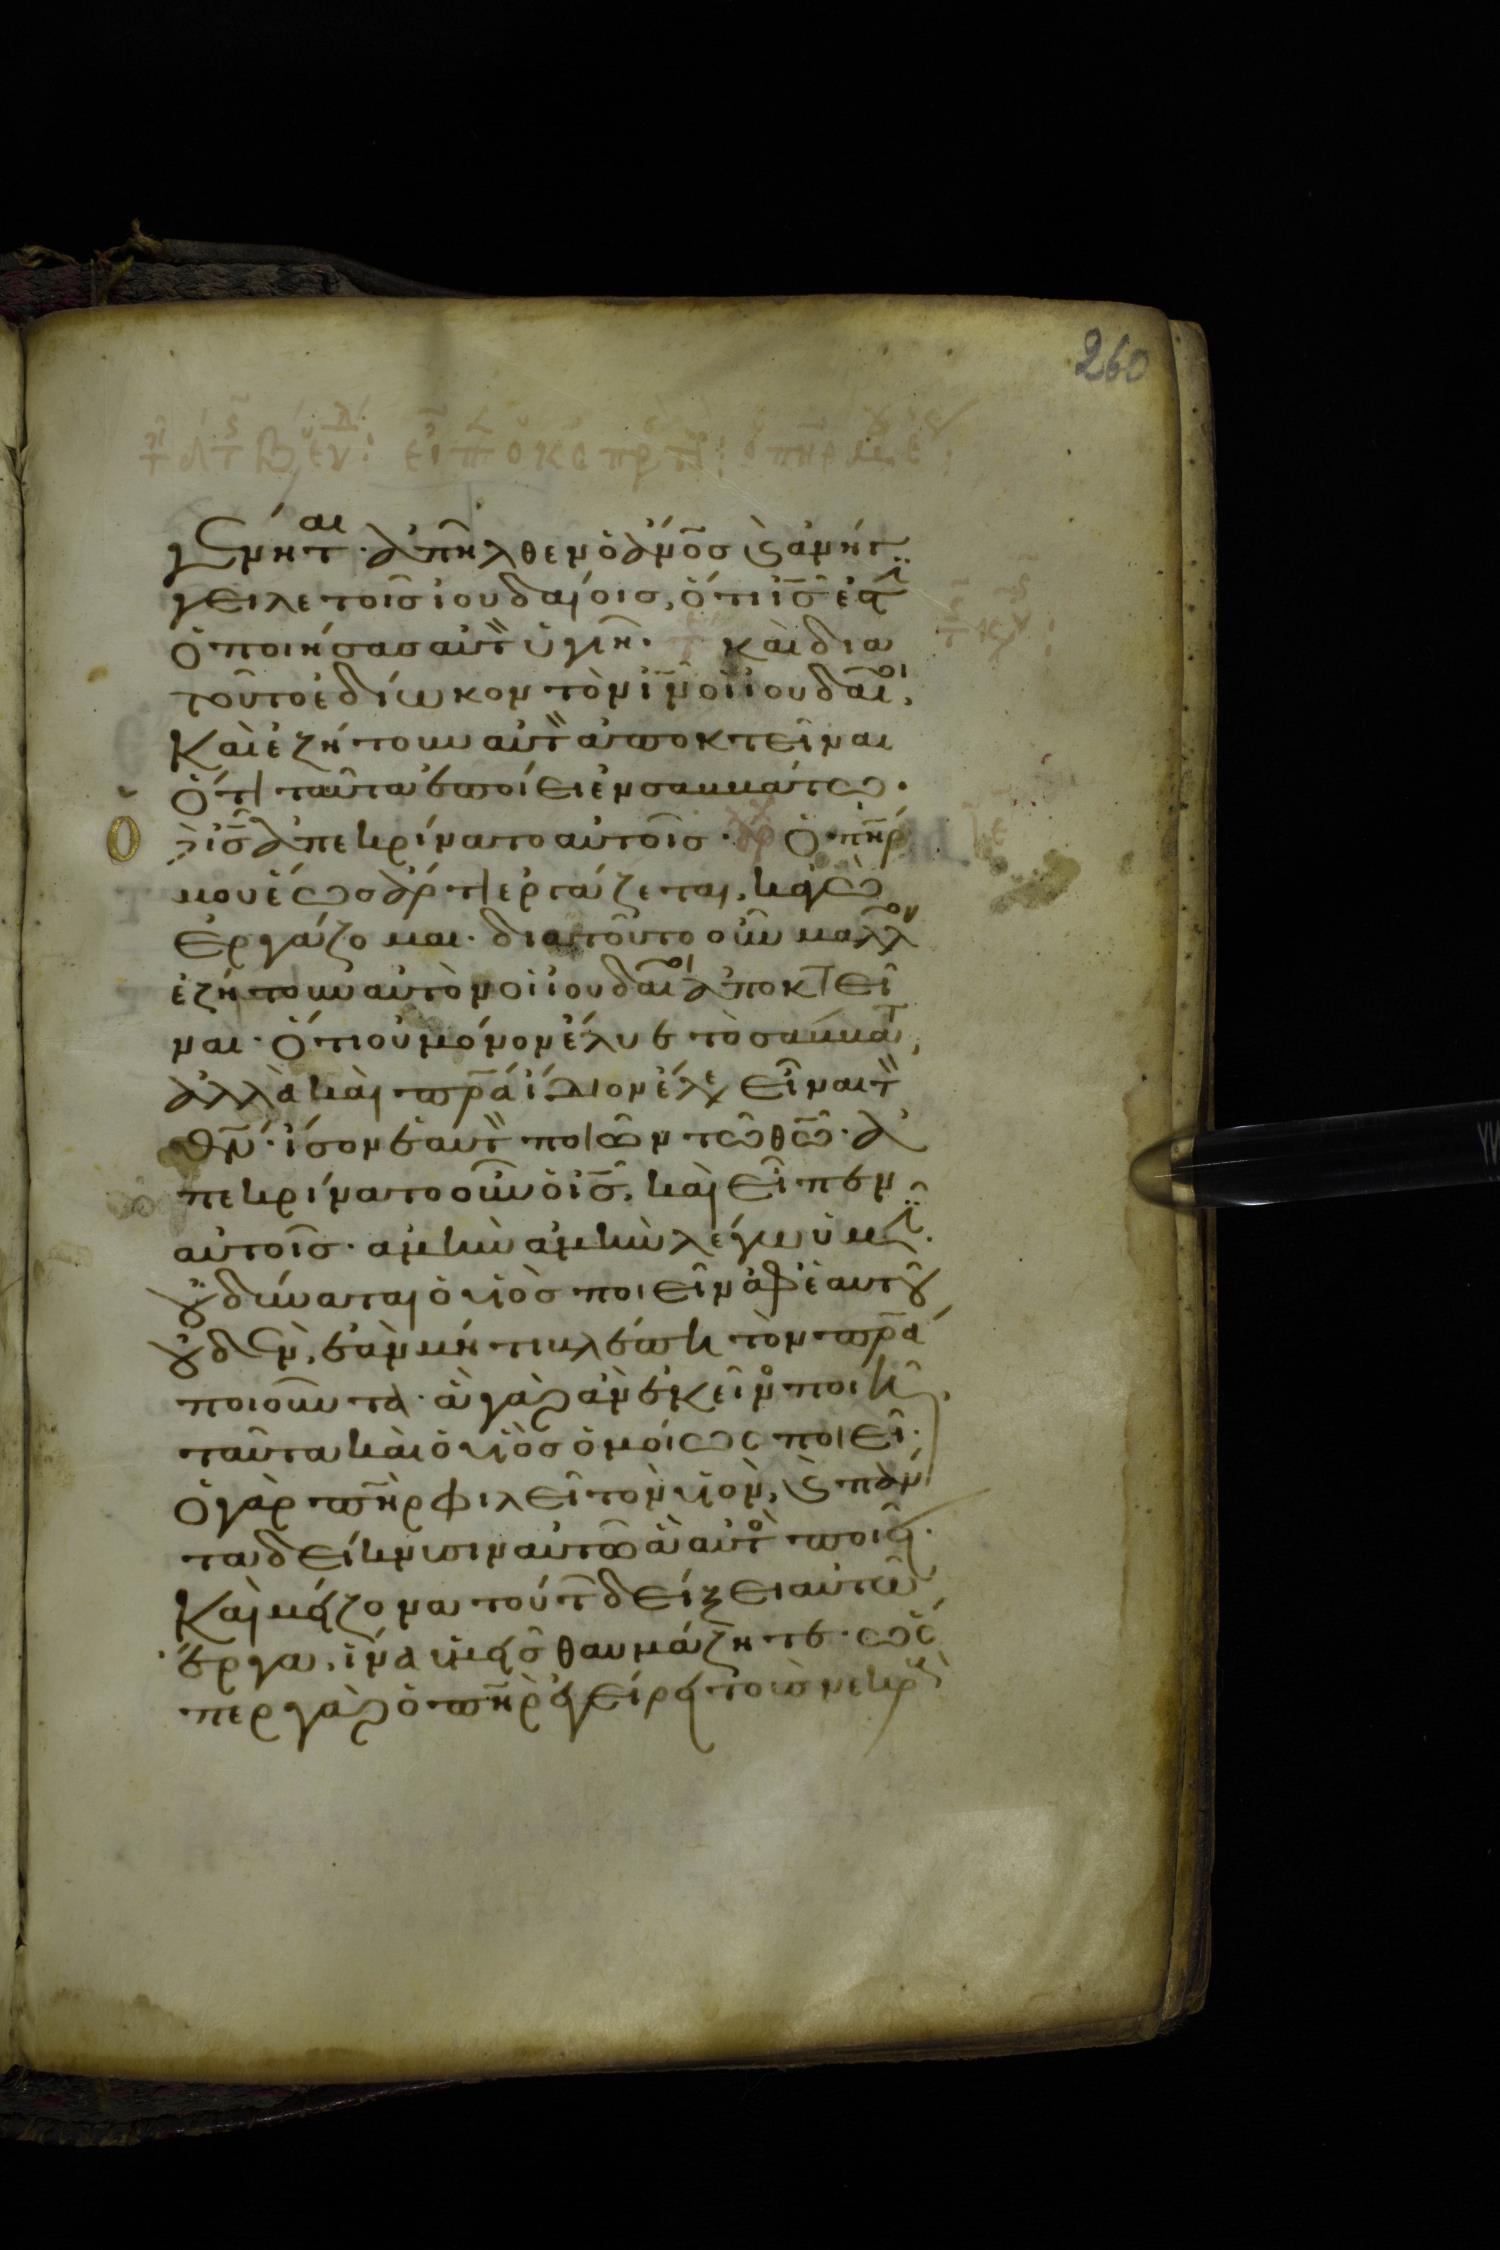 260
γένητ αι · ἀπῆλθεν ὁ ἀνο̅σ καὶ ἀνήγ
γειλε τοῖσ ἰουδαίοισ, ὅτι ισ̅ ἐστ
ὁ ποιήσασ αὐτ ὑγιῆ · καὶ δια
τοῦτο ἐδίωκον τὸν ιν̅ οἱ ἰουδαῖοι,
Καὶ ἐζήτουν αὐτ ἀποκτεῖναι
Ὅτι ταῦτα ἐποίει ἐν σαββάτω ·
ὁ ισ̅ ἀπεκρίνατο αὐτοῖσ · Ὁ πη̅ρ
μου ἕωσ ἄρτι ἐργάζεται, κἀγὼ
ἐργάζομαι · διὰ τοῦτο οὖν μαλλον
ἐζήτουν αὐτὸν οἱ ἰουδαῖοι ἀποκτεῖ
ναι · Ὅτι οὐ μόνον ἔλυε τὸ σάββατ,
ἀλλὰ καὶ πρ̅α ἴδιον ἔλεγ εἶναι τ
θν̅ · ἴσον ἑαυτ ποιῶν τῶ θω̅ · ἀ
πεκρίνατο οὖν ὁ ισ̅, καὶ εἶπεν
αὐτοῖσ · ἀμὴν ἀμὴν λέγω ὑμῖ ·
οὐ δύναται ὁ υἱὸσ ποιεῖν ἀφ' ἑαυτοῦ
οὐδὲν, ἐὰν μή τι βλέπη τὸν πρ̅α
ποιοῦντα · ἃ γὰρ ἂν ἐκεῖνο ποιῆ,
ταῦτα καὶ ὁ υἱὸσ ὁμοίωσ ποιεῖ ·
Ὁ γὰρ πη̅ρ φιλεῖ τὸν υἱὸν, καὶ πάν
τα δείκνυσιν αὐτῶ ἃ αὐτὸ ποιεῖ ·
Καὶ μείζονα τούτ δείξει αὐτῶ
ἔργα, ἵνα ὑμεῖσ θαυμάζητε · ὥσ
περ γὰρ ὁ πη̅ρ ἐγείρει τοὺσ νεκρ